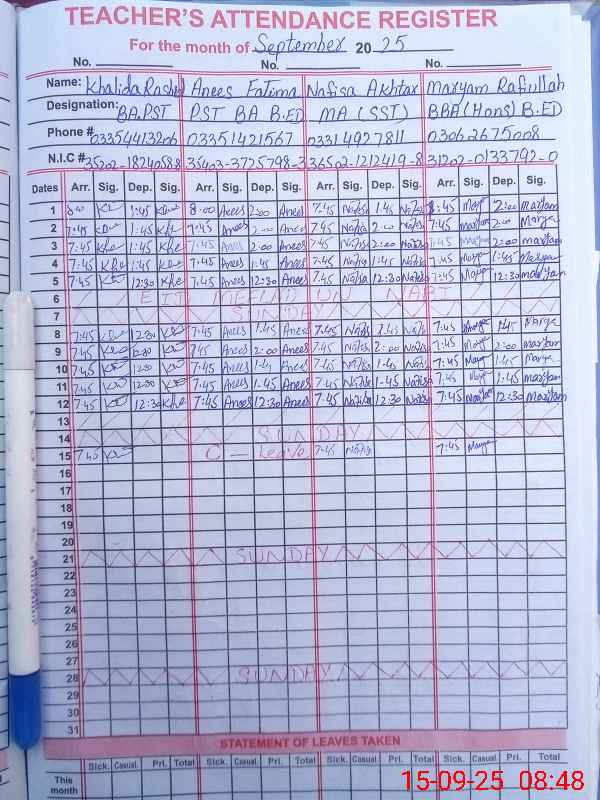 TEACHER'S ATTENDANCE REGISTER
For the month of September 2025
No. No. No.
Name: Khalida Rashid Anees Fatima Nafisa Akhtar Maryam Rafiullah
Designation: BA.PST PST BA B.ED MA (SST) BBA (Hons) B.ED
Phone # 03354413206 03351421567 03314927811 03062675008
N.I.C # 35202-1824058-8 35403-3725798-3 36502-1212419-8 31202-0133792-0
Dates Arr. Sig. Dep. Sig. Arr. Sig. Dep. Sig. Arr. Sig. Dep. Sig. Arr. Sig. Dep. Sig.
1 1:45 8:00 Anees 2:00 Anees 7:45 Nafisa 1:45 Nafisa 2:00 Maryam
2 7:45 1:45 7:45 Anees 2:00 Anees 7:45 Nafisa 2:00 Nafisa 7:45 Maryam 2:00 Marya
3 7:45 1:45 7:45 Anees 2:00 Anees 7:45 Nafisa 2:00 Nafisa 7:45 Maryam 2:00 Maryam
4 7:45 1:45 7:45 Anees 1:45 Anees 7:45 Nafisa 1:45 Nafisa 7:45 1:45 Maryam
5 7:45 12:30 7:45 Anees 12:30 Anees 7:45 Nafisa 12:30 Nafisa 7:45 12:30 Maryam
6 EID MEELAD UN NABI
7 SUNDAY
8 7:45 12:00 7:45 Anees 1:45 Anees 7:45 Nafisa 1:45 Nafisa 7:45 1:45 Marya
9 7:45 12:00 7:45 Anees 2:00 Anees 7:45 Nafisa 2:00 Nafisa 7:45 2:00 Maryam
10 7:45 12:00 7:45 Anees Anees 7:45 Nafisa 1:45 Nafisa 7:45 1:45 Marya
11 7:45 12:00 7:45 Anees 1:45 Anees 7:45 Nafisa 1:45 Nafisa 7:45 1:45 Maryam
12 7:45 12:30 7:45 Anees 12:30 Anees 7:45 Nafisa 12:30 Nafisa 7:45 12:30 Maryam
13
14 SUNDAY
15 7:45 C - Leave 7:45 Nafisa 7:45
16
17
18
19
20
21 SUNDAY
22
23
24
25
26
27
28 SUNDAY
29
30
31
STATEMENT OF LEAVES TAKEN
Sick. Casual. Pri. Total Sick. Casual. Pri. Total Sick. Casual. Pri. Total Sick. Casual. Pri. Total
This month
15-09-25 08:48